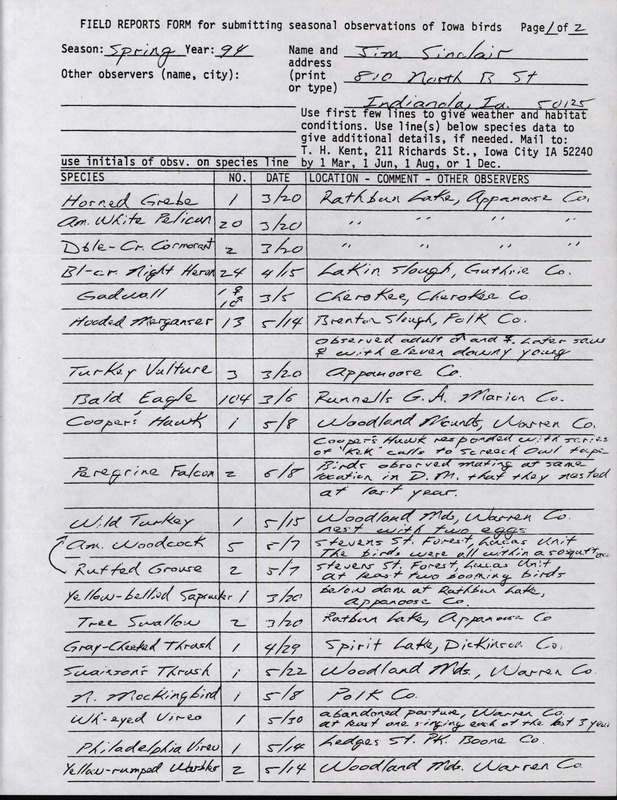 FIELD REPORTS FORM for submitting seasonal observations of Iowa birds Page 1 of 2
Season: Spring Year: 94 Name and address (print or type) Jim Sinclair
810 North B St
Indianola, Ia. 50125
Other observers (name, city):
Use first few lines to give weather and habitat
conditions. Use line(s) below species data to
give additional details, if needed. Mail to:
T. H. Kent, 211 Richards St., Iowa City IA 52240
use initials of obsv. on species line by 1 Mar, 1 Jun, 1 Aug, or 1 Dec.
SPECIES NO. DATE LOCATION - COMMENT - OTHER OBSERVERS
Horned Grebe 1 3/20 Rathbun Lake, Appanoose Co.
Am. White Pelican 20 3/20 " " " "
Dble-Cr. Cormorant 2 3/20 " " " "
Bl-cr. Night Heron 24 4/15 Lakin Slough, Guthrie Co.
Gadwall 1♀ 1♂ 3/5 Cherokee, Cherokee Co.
Hooded Merganser 13 5/14 Brenton Slough, Polk Co.
observed adult ♂ and ♀. Later saw
♀ with eleven downy young
Turkey Vulture 3 3/20 Appanoose Co.
Bald Eagle 104 3/6 Runnells G.A. Marion Co.
Cooper's Hawk 1 5/8 Woodland Mounds, Warren Co.
Cooper's Hawk responded with series
of "Kek" calls to Screech Owl tape
Peregrine Falcon 2 6/8 Birds observed mating at same
location in D.M. that they nested
at last year.
Wild Turkey 1 5/15 Woodland Mds, Warren Co.
nest with two eggs
Am. Woodcock 5 5/7 Stevens St. Forest, Lucas Unit
The birds were all within a
Ruffed Grouse 2 5/7 Stevens St. Forest, Lucas Unit
at least two booming birds
Yellow-bellied Sapsucker 1 3/20 below dam at Rathbun Lake,
Appanoose Co.
Tree Swallow 2 3/20 Ratbun Lake, Appanoose Co
Gray-Cheeked Thrush 1 4/29 Spirit Lake, Dickinson Co.
Swainson's Thrush 1 5/22 Woodland Mds., Warren Co.
N. Mockingbird 1 5/8 Polk Co.
Wh-eyed Vireo 1 5/30 abandoned pasture, Warren Co.
at least one singing each of the last 3 years
Philadelphia Vireo 1 5/14 Ledges St. Pk. Boone Co.
Yellow-rumped Warbler 2 5/14 Woodland Mds. Warren Co.